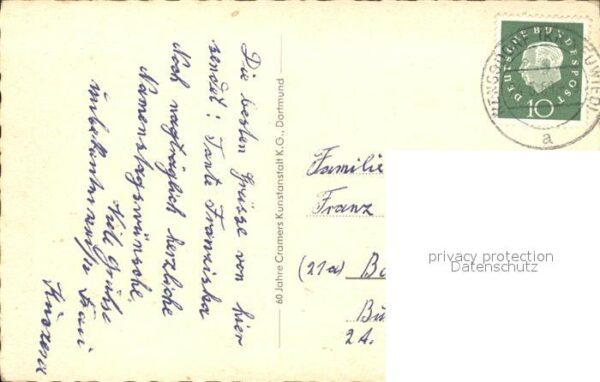 Die besten Grüsse von hier
sendet: Tante Franziska
Noch nachträglich herzliche
Namenstagswünsche,
unbekannterweise
Viele Grüsse
60 Jahre Cramers Kunstanstalt K.G., Dortmund
DEUTSCHE BUNDESPOST
10
a
Familie
Franz
(21a) Bo
Bu
24.
privacy protection
Datenschutz